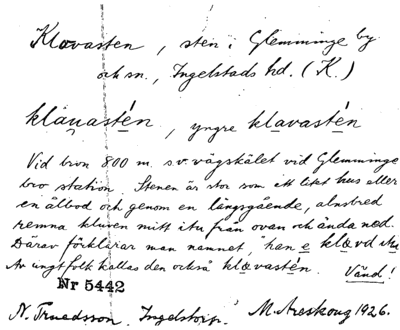 Klavasten, sten i Glemminge by
och sn., Ingelstads hd. (K.)
klau̯astén, yngre klavastén
Vid bron 800 m. s.v. vägskälet vid Glemminge
bro station. Stenen är stor som ett litet hus eller
en ålbod och genom en långsgående, alnsbred
remna kluven mitt itu från ovan och ända ned.
Därav förklarar man namnet, han e kløvd itu
Av ungt folk kallas den också klavastén. Vänd!
Nr 5442
N. Truedsson, Ingelstorp. M. Areskoug 1926.